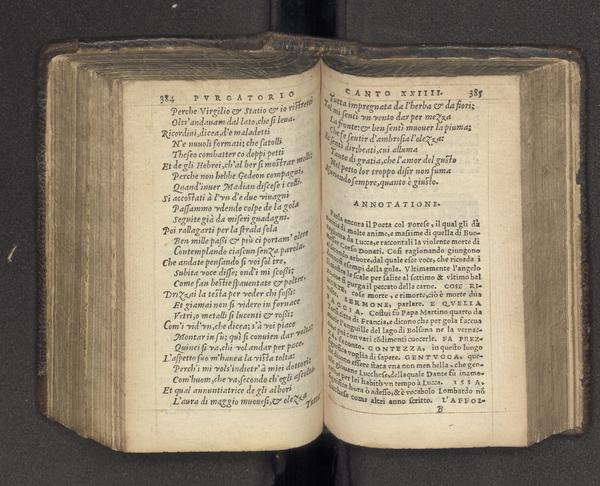 384 PVRGATORIO
Perche Virgilio & Statio & io ristretti
Oltr'andauam dal lato, che si leua.
Ricordiui, dicea, d'e maladetti
N'e nuuoli formati; che satolli
Theseo combatter co doppi petti
Et de gli Hebrei, ch'al ber si mostrar molli
Perche non hebbe Gedeon compagni,
Quand'inuer Madian discese i colli.
Si accostati à l'vn d'e due viuagni
Passammo vdendo colpe de la gola
Seguite già da miseri guadagni.
Poi rallagarti per la strala sola
Ben mille passi & più ci portam'oltre
Contemplando ciascun senza parola.
Che andate pensando si voi sol tre,
Subita voce disse; ond'i mi scossi;
Come fan bestie spauentate & poltre,
Drizzai la testa per veder chi fossi:
Et giamai non si videro in fornace
Vetri, o metalli si lucenti & rossi;
Com'i vid'vn, che dicea; s'à voi piace
Montar in su; quà si conuien dar volta:
Quinci si va, chi vol andar per pace.
L'aspetto suo m'hauea la vista tolta:
Perch'i mi volsi'ndietr'à miei dottori:
Com'huom, che va, secondo ch'egli ascolta.
Et qual annuntiatrice de gli albori
L'aura di maggio muouesi, & olezza
Tutta
CANTO XXIIII. 385
Tutta impregnata da l'herba & da fiori;
Tal mi senti vn vento dar per mezza
La fronte: & ben senti muouer la piuma;
Che fe sentir d'ambrosia l'olezza:
Et senti dir; beati, cui alluma
Tanto di gratia, che l'amor del gusto
Nel petto lor troppo disir non fuma
Esuriendo sempre, quanto è giusto.
ANNOTATIONE.
Parla ancora il Poeta col Forese, il qual gli dà
di molte anime, e massime di quella di Buo-
da Lucca, e raccontali la violente morte di
Corso Donati. Cosi ragionando giungono
secondo arbore, dal quale esce voce, che ricorda i
essempi della gola. Vltimamente l'angelo
le scale per salire al settimo & vltimo bal
si purga il peccato della carne. COSE RI-
cose morte, e rimorte, ciò è morte due
SERMONE; parlare. E QVELLA
FACCIA. Costui fù Papa Martino quarto da
città di Francia, e dicono che per gola faceua
l'anguille del lago di Bolsena ne la vernac-
poi con varij cōdimenti cuocerle. FA PREZ-
conto. CONTEZZA, in questo luogo
voglia di sapere. GENTVCCA, que-
essere stata vna non men bella, che gen-
giouane Lucchese, della quale Dante fu inamo-
per lei habitò vn tempo à Lucca. ISSA,
hora ò adesso, & è vocabolo Lombardo nō
come altri anno scritto. L'AFFOL-
B